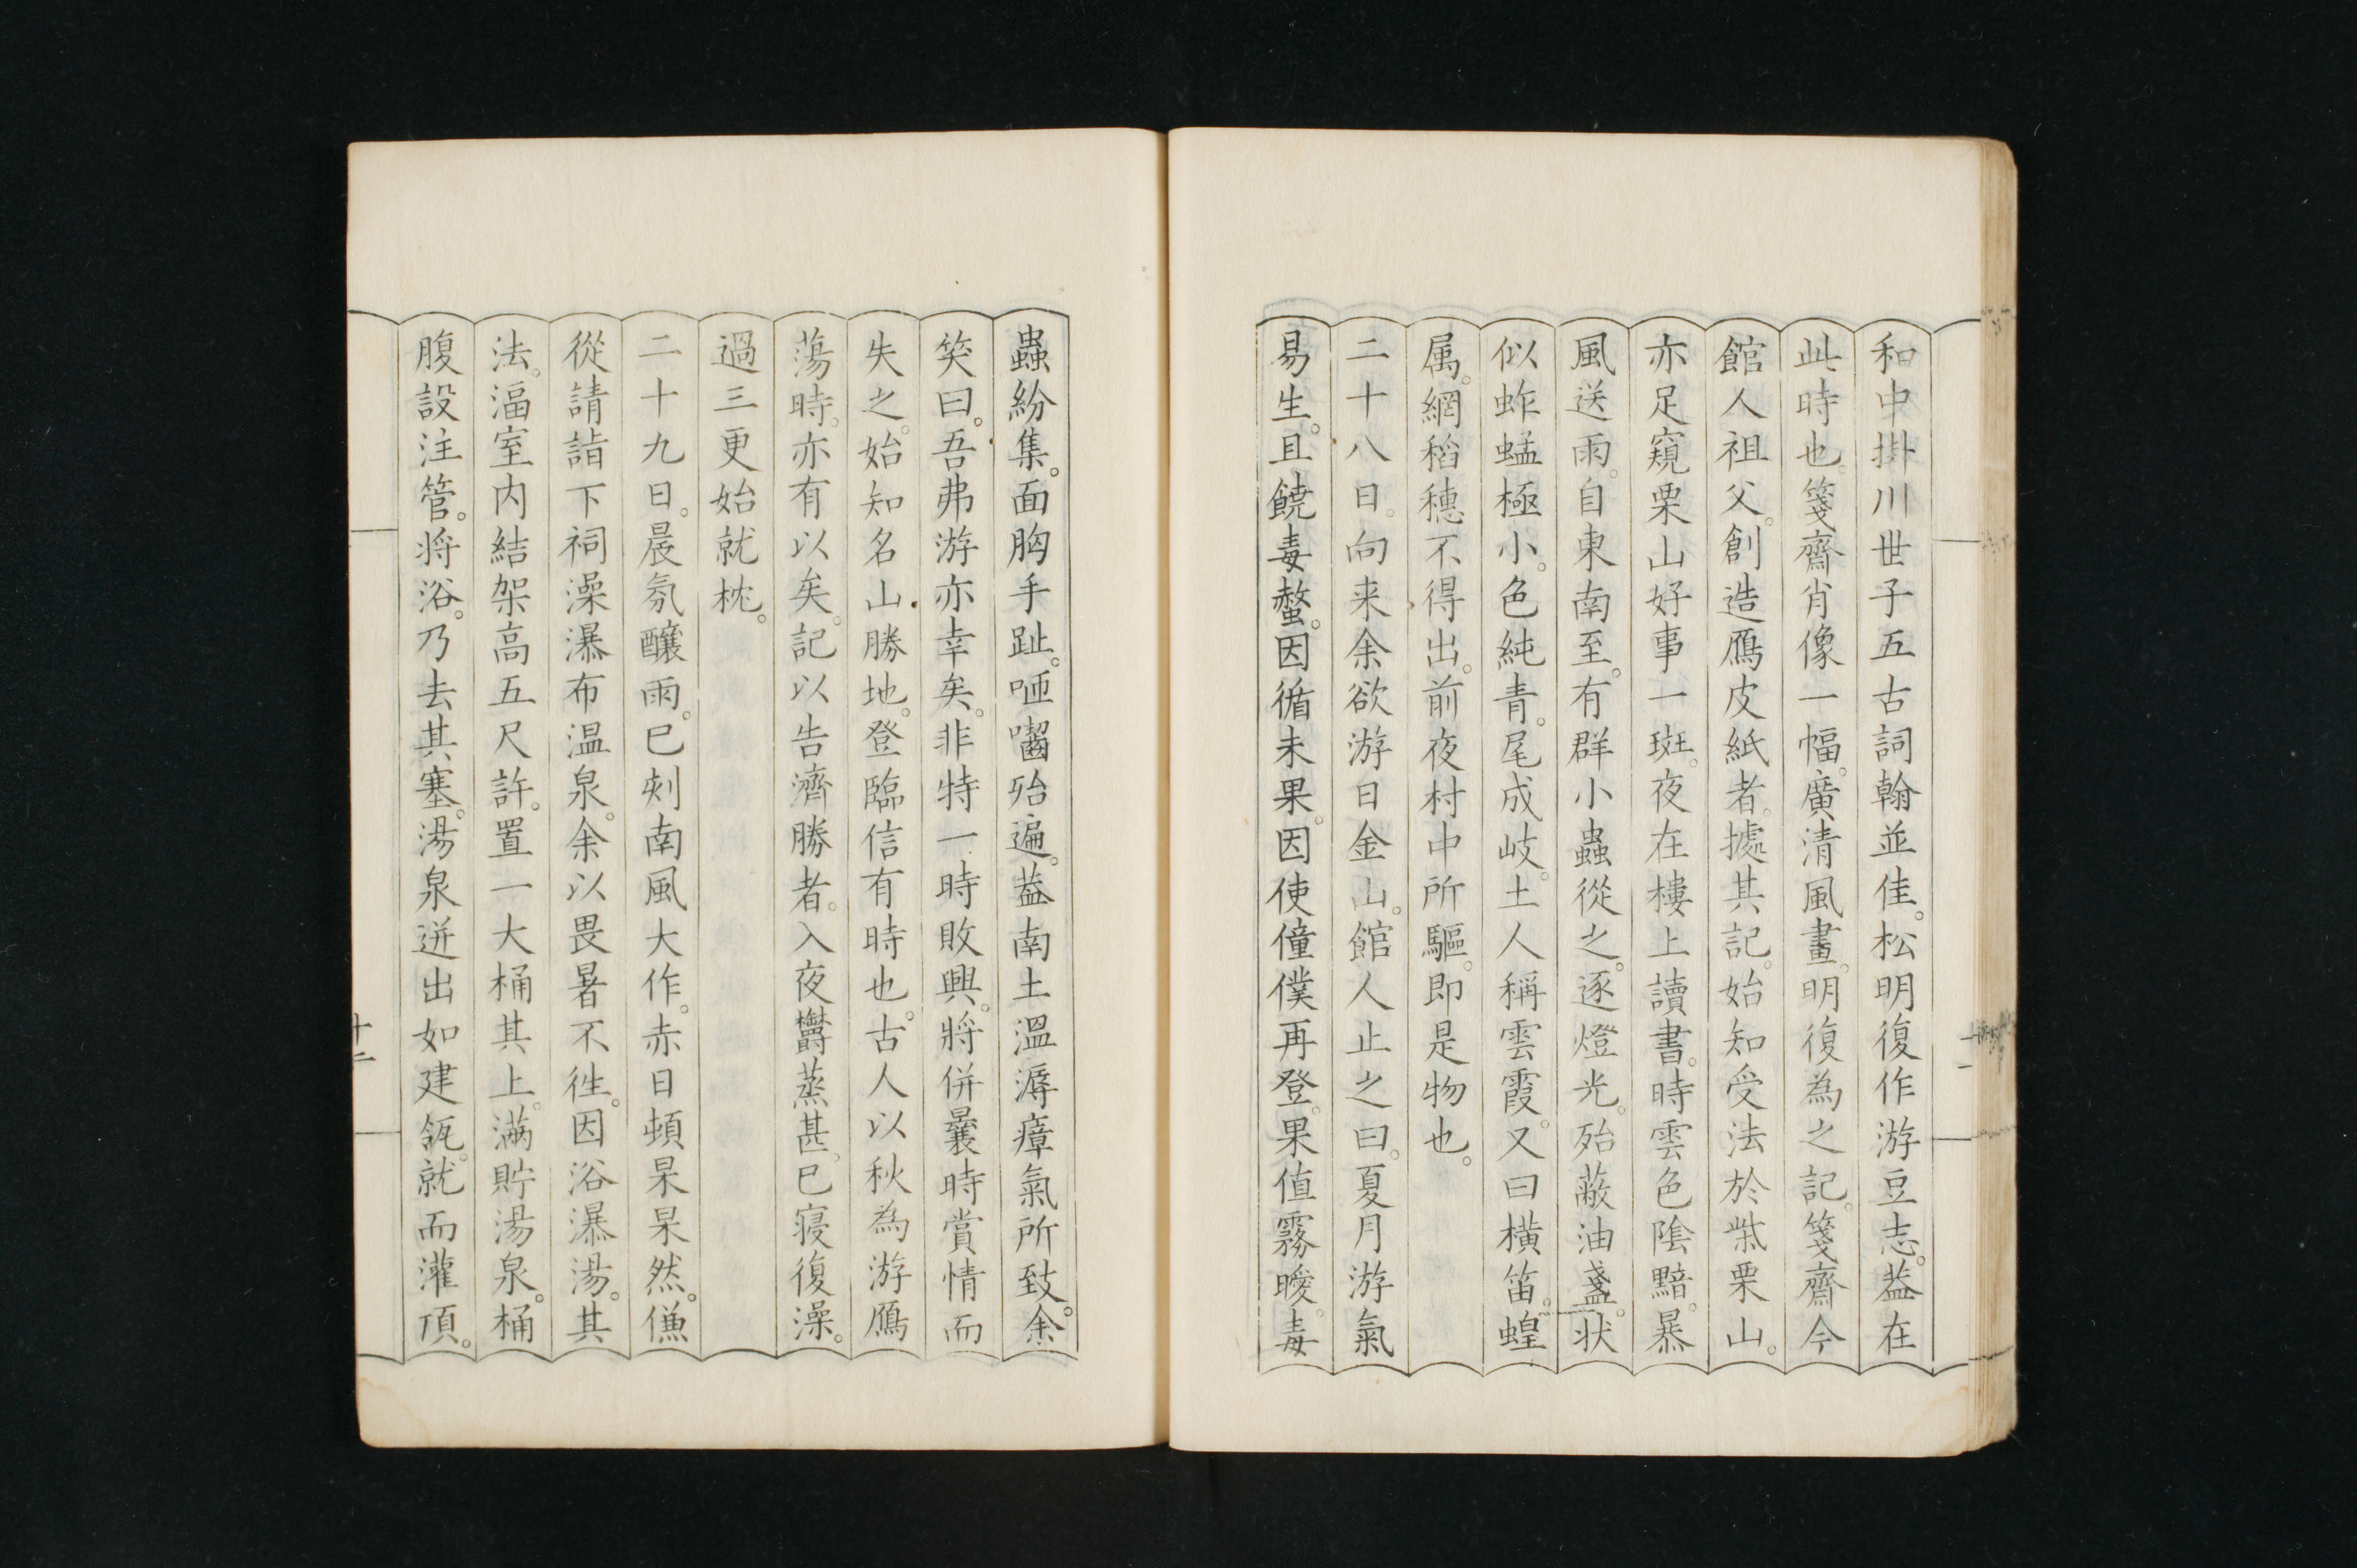 和中掛川世子五古詞翰並佳。松明復作游豆志。葢在
此時也。箋齋肖像一幅。廣清風畫。明復為之記。箋齋今
館人祖父。創造鴈皮紙者。據其記。始知受法於柴栗山。
亦足窺栗山好事一斑。夜在樓上讀書。時雲色陰黯。暴
風送雨。自東南至。有群小蟲從之。逐燈光。殆蔽油盞。状
似蚱蜢極小。色純青。尾成岐。土人稱雲霞。又曰横笛。蝗
属。網稻穗不得出。前夜村中所驅。即是物也。
二十八日。向来余欲游日金山。館人止之曰。夏月游氣
易生。且饒毒螫。因循未果。因使僮僕再登。果值霧曖。毒
蟲紛集。面胸手趾。咂囓殆遍。葢南土溫溽瘴氣所致。余
笑曰。吾弗游亦幸矣。非特一時敗興。將併曩時賞情而
失之。始知名山勝地。登臨信有時也。古人以秋為游鴈
蕩時。亦有以矣。記以告濟勝者。入夜欝蒸甚。已寝復澡。
過三更始就枕。
二十九日。晨氛釀雨。巳刻南風大作。赤日頓杲杲然。傔
從請詣下祠澡瀑布温泉。余以畏暑不徃。因浴瀑湯。其
法。湢室内結架高五尺許。置一大桶其上。满貯湯泉。桶
腹設注管。将浴。乃去其塞。湯泉迸出如建瓴。就而灌頂。
十二